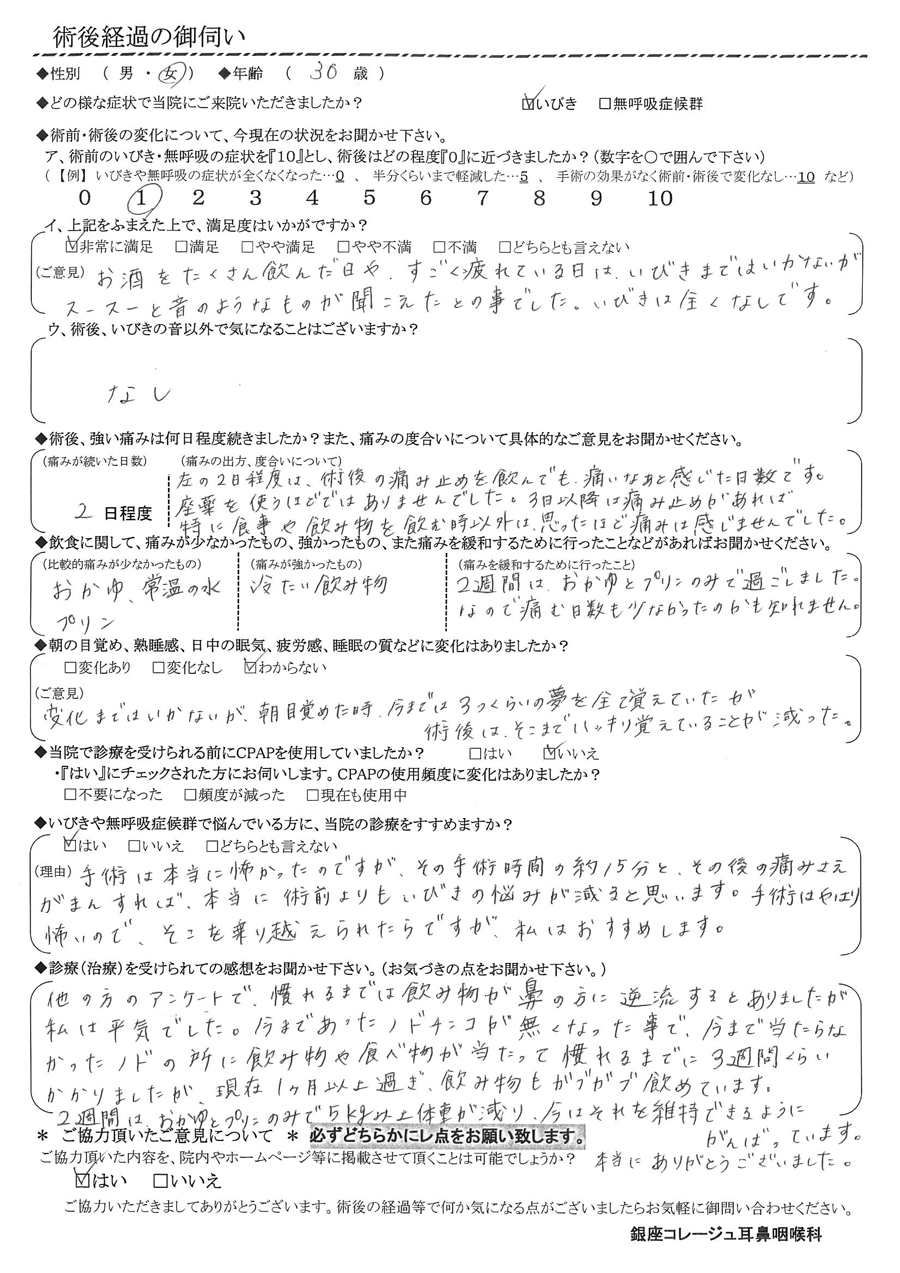 術後経過の御伺い
◆性別 ( 男 ・ 女 ) ◆年齢 ( 30 歳 )
◆どの様な症状で当院にご来院いただきましたか? ☑いびき □無呼吸症候群
◆術前・術後の変化について、今現在の状況をお聞かせ下さい。
ア、術前のいびき・無呼吸の症状を『10』とし、術後はどの程度『0』に近づきましたか?(数字を○で囲んで下さい)
(【例】 いびきや無呼吸の症状が全くなくなった…0 、 半分くらいまで軽減した…5 、 手術の効果がなく術前・術後で変化なし…10 など)
0 1 2 3 4 5 6 7 8 9 10
イ、上記をふまえた上で、満足度はいかがですか?
☑非常に満足 □満足 □やや満足 □やや不満 □不満 □どちらとも言えない
(ご意見) お酒をたくさん飲んだ日や、すごく疲れている日は、いびきまではいかないが
スースーと音のようなものが聞こえたとの事でした。いびきは全くなしです。
ウ、術後、いびきの音以外で気になることはございますか?
なし
◆術後、強い痛みは何日程度続きましたか?また、痛みの度合いについて具体的なご意見をお聞かせください。
(痛みが続いた日数) (痛みの出方、度合いについて)
左の2日程度は、術後の痛み止めを飲んでも、痛いなぁと感じた日数です。
2 日程度 座薬を使うほどではありませんでした。3日以降は痛み止めがあれば
特に食事や飲み物を飲む時以外は、思ったほど痛みは感じませんでした。
◆飲食に関して、痛みが少なかったもの、強かったもの、また痛みを緩和するために行ったことなどがあればお聞かせください。
(比較的痛みが少なかったもの) (痛みが強かったもの) (痛みを緩和するために行ったこと)
おかゆ、常温の水 冷たい飲み物 2週間は、おかゆとプリンのみで過ごしました。
プリン なので痛む日数も少なかったのかも知れません。
◆朝の目覚め、熟睡感、日中の眠気、疲労感、睡眠の質などに変化はありましたか?
□変化あり □変化なし ☑わからない
(ご意見)
変化まではいかないが、朝目覚めた時、今までは3つくらいの夢を全て覚えていたが
術後は、そこまでハッキリ覚えていることが減った。
◆当院で診療を受けられる前にCPAPを使用していましたか? □はい ☑いいえ
・『はい』にチェックされた方にお伺いします。CPAPの使用頻度に変化はありましたか?
□不要になった □頻度が減った □現在も使用中
◆いびきや無呼吸症候群で悩んでいる方に、当院の診療をすすめますか?
☑はい □いいえ □どちらとも言えない
(理由) 手術は本当に怖かったのですが、その手術時間の約15分と、その後の痛みさえ
がまんすれば、本当に術前よりもいびきの悩みが減ると思います。手術はやはり
怖いので、そこを乗り越えられたらですが、私はおすすめします。
◆診療(治療)を受けられての感想をお聞かせ下さい。(お気づきの点をお聞かせ下さい。)
他の方のアンケートで、慣れるまでは飲み物が鼻の方に逆流するとありましたが
私は平気でした。今まであったノドチンコが無くなった事で、今まで当たらな
かったノドの所に飲み物や食べ物が当たって慣れるまでに3週間くらい
かかりましたが、現在1ヶ月以上過ぎ、飲み物もガブガブ飲めています。
2週間は、おかゆとプリンのみで5kg以上体重が減り、今はそれを維持できるように
がんばっています。
* ご協力頂いたご意見について * 必ずどちらかにレ点をお願い致します。
ご協力頂いた内容を、院内やホームページ等に掲載させて頂くことは可能でしょうか? 本当にありがとうございました。
☑はい □いいえ
ご協力いただきましてありがとうございます。術後の経過等で何か気になる点がございましたらお気軽に御問い合わせください。
銀座コレージュ耳鼻咽喉科